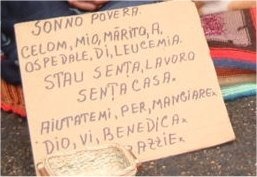 SONNO POVERA.
CELOM, MIO, MĀRITO, A
OSPEDALE, DI, LEUCEMIA.
STAU SENȚA, LAVORO
SENȚA CASA.
AIUTATEMI, PER, MANGIARE
DIO, VI, BENEDICA
RAZZIE